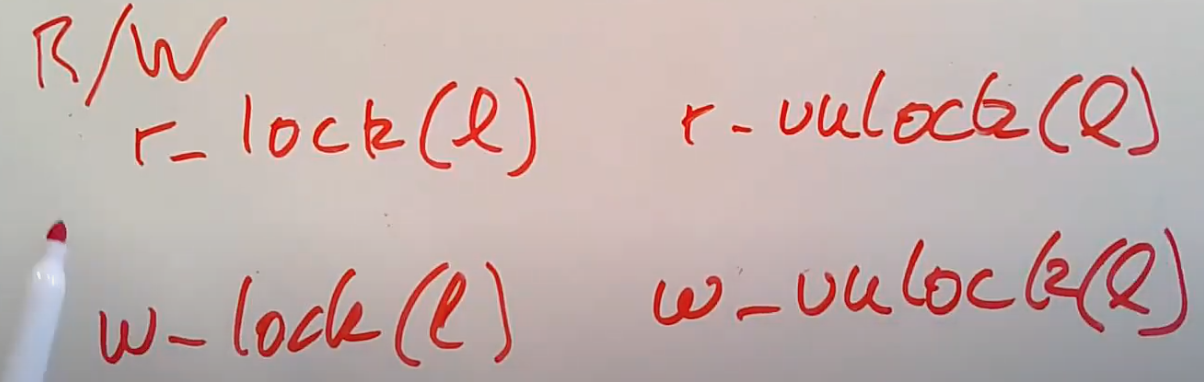 R/W
r_lock(l) r-unlock(l)
w-lock(l) w-unlock(l)